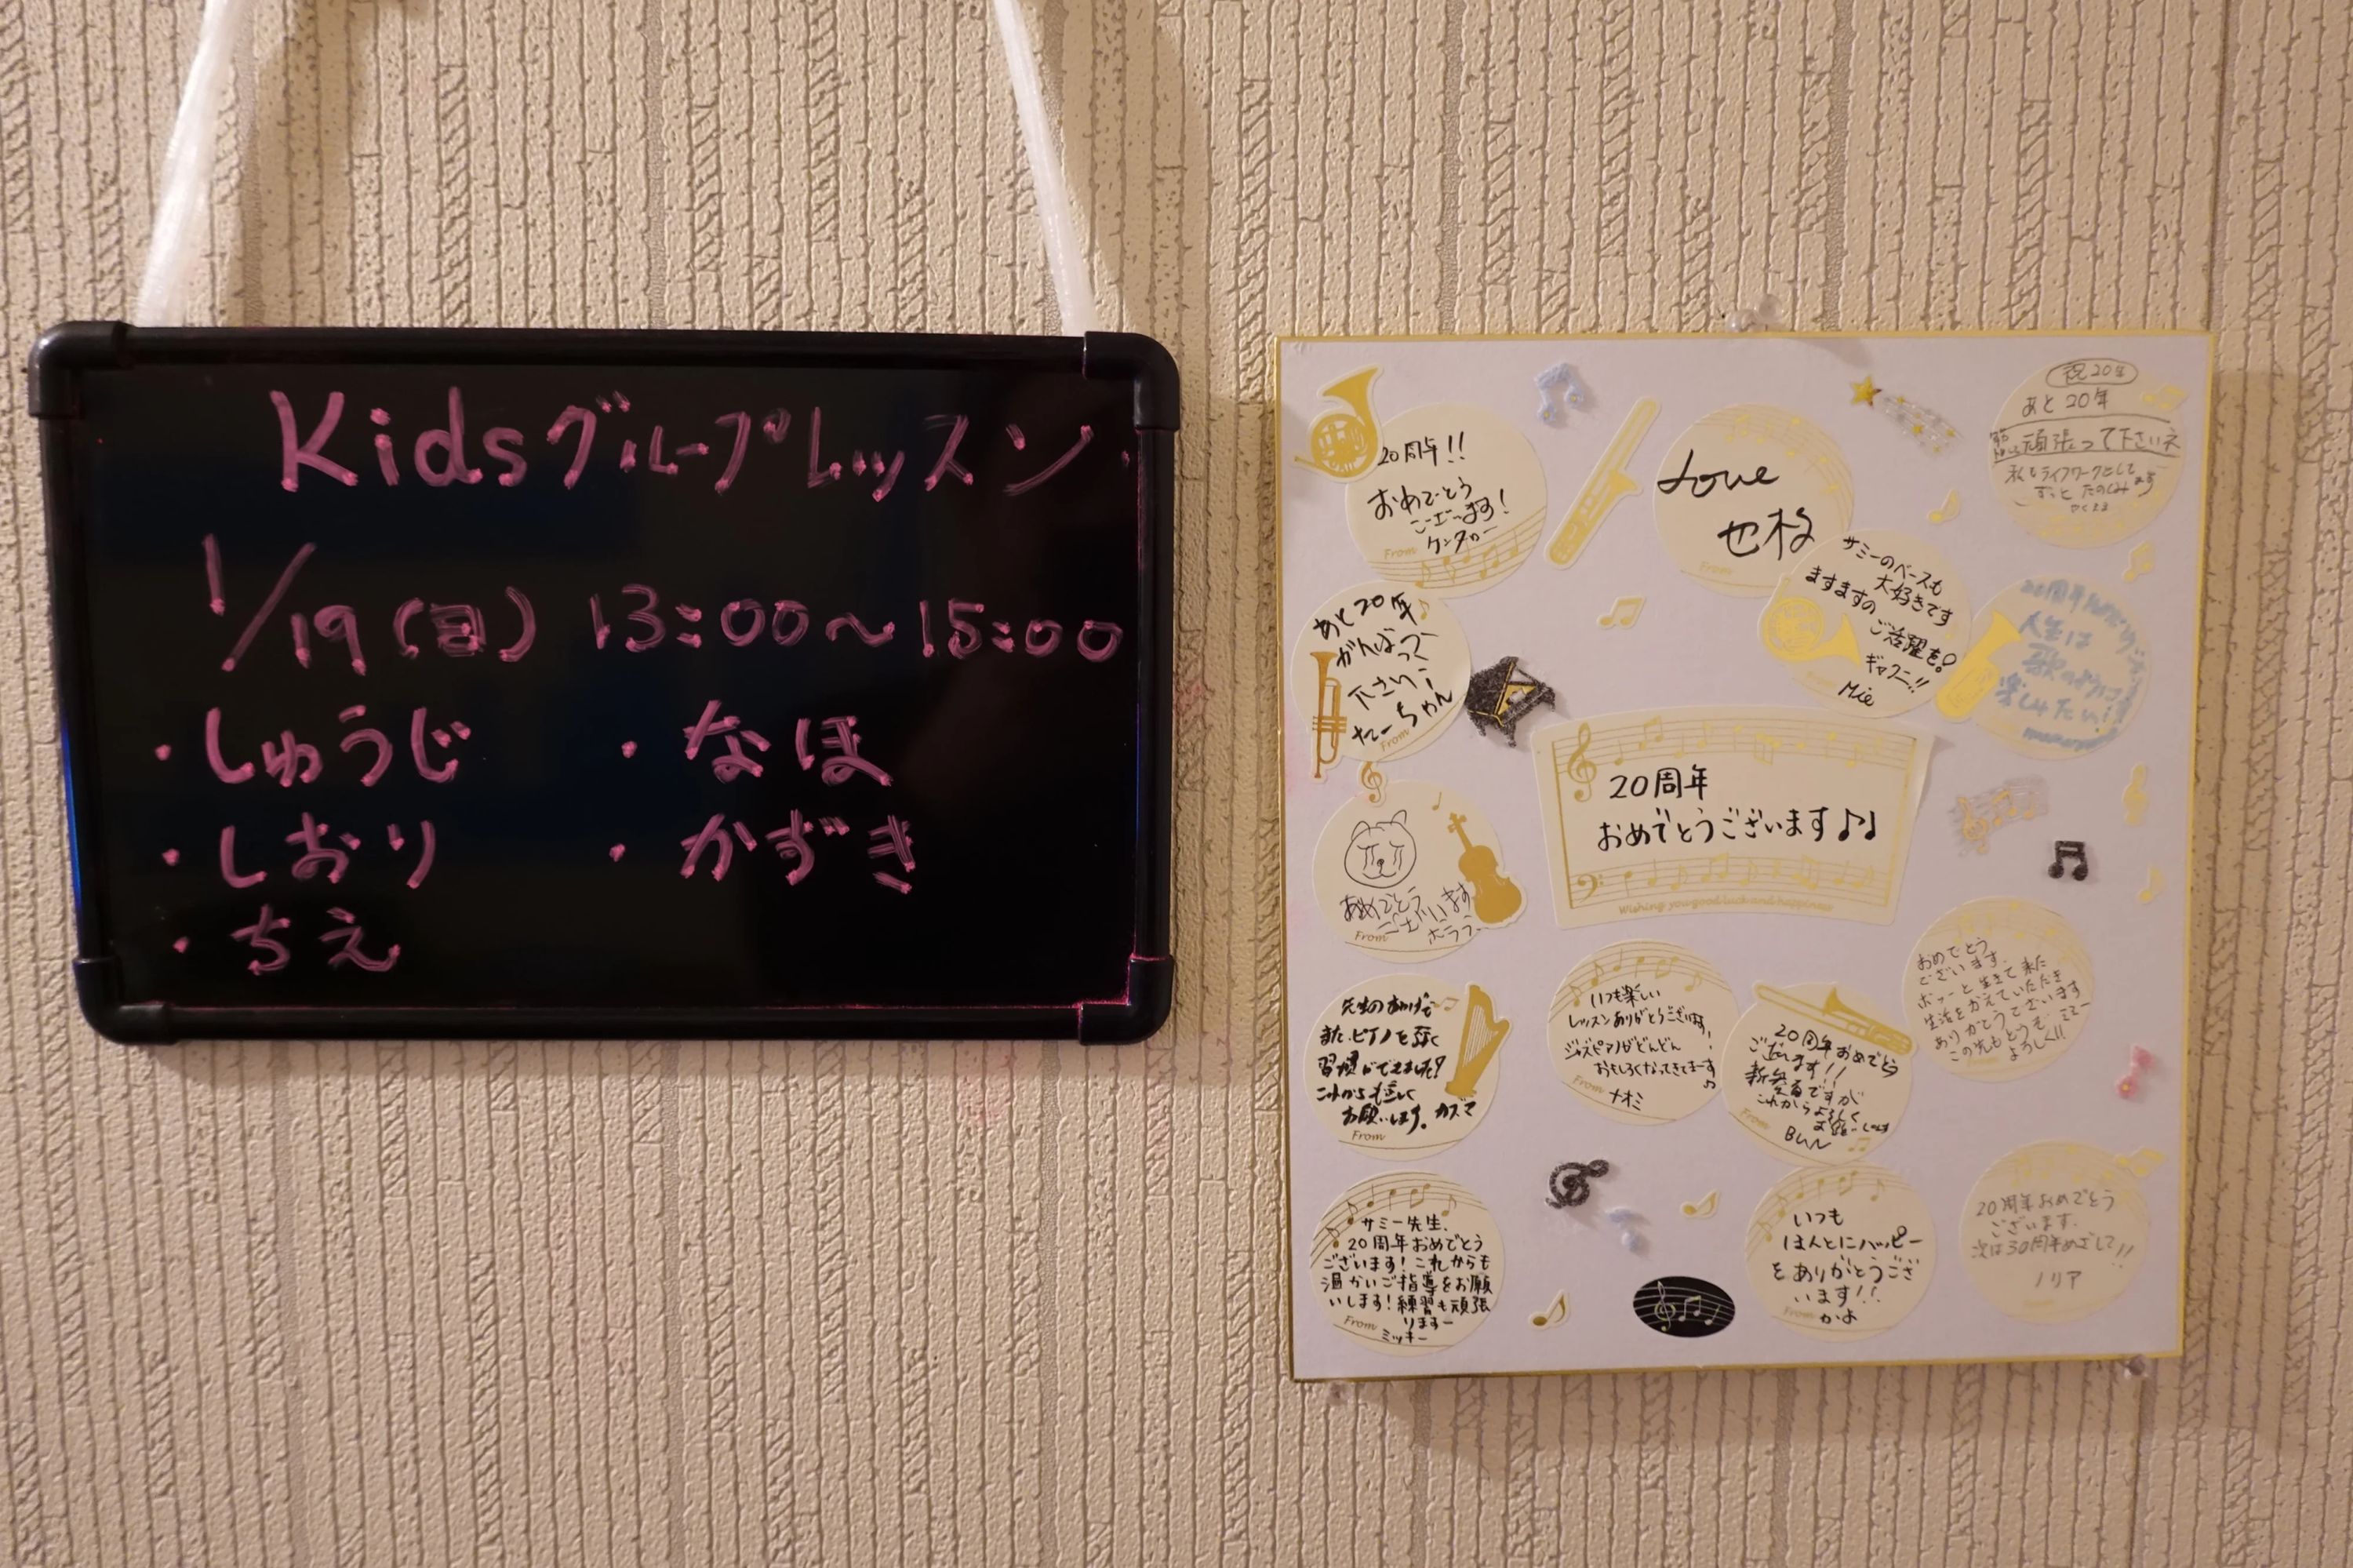 Kidsグループレッスン
1/19(日) 13:00~15:00
・しゅうじ ・なほ
・しおり ・かずき
・ちえ
20周年!!
おめでとう
ございます!
ケンタロー
From
Love
也枝
From
祝20年
あと20年
頑張って下さいネ
私もライフワークとして
ずっと たのしみます
サミーのベースも
大好きです
ますますの
ご活躍を!
ギャフニー!!
Mie
あと20年
がんばって
下さい!
ちゃん
From
人生は
歌のように
楽しみたい!
20周年
おめでとうございます♪♩
Wishing you good luck and happiness
おめでとう
ございます
From
先生のおかげで
またピアノを弾く
習慣ができました!
これからも宜しく
お願いします。カズマ
From
いつも楽しい
レッスンありがとうございます!
ジャズピアノがどんどん
おもしろくなってきてまーす♪
From
ナオミ
20周年おめでとう
ございます!!
新参者ですが
これからよろしく
お願いします
From
BUN
おめでとう
ございます。
生活をかえていただき
ありがとうございます
この先もどうぞ
よろしく!!
サミー先生、
20周年おめでとう
ございます!これからも
温かいご指導をお願
いします!練習も頑張
りますー
From ミッキー
いつも
ほんとにハッピー
をありがとうござ
います!!
From かよ
20周年おめでとう
ございます。
次は30周年めざして!!
ノリア